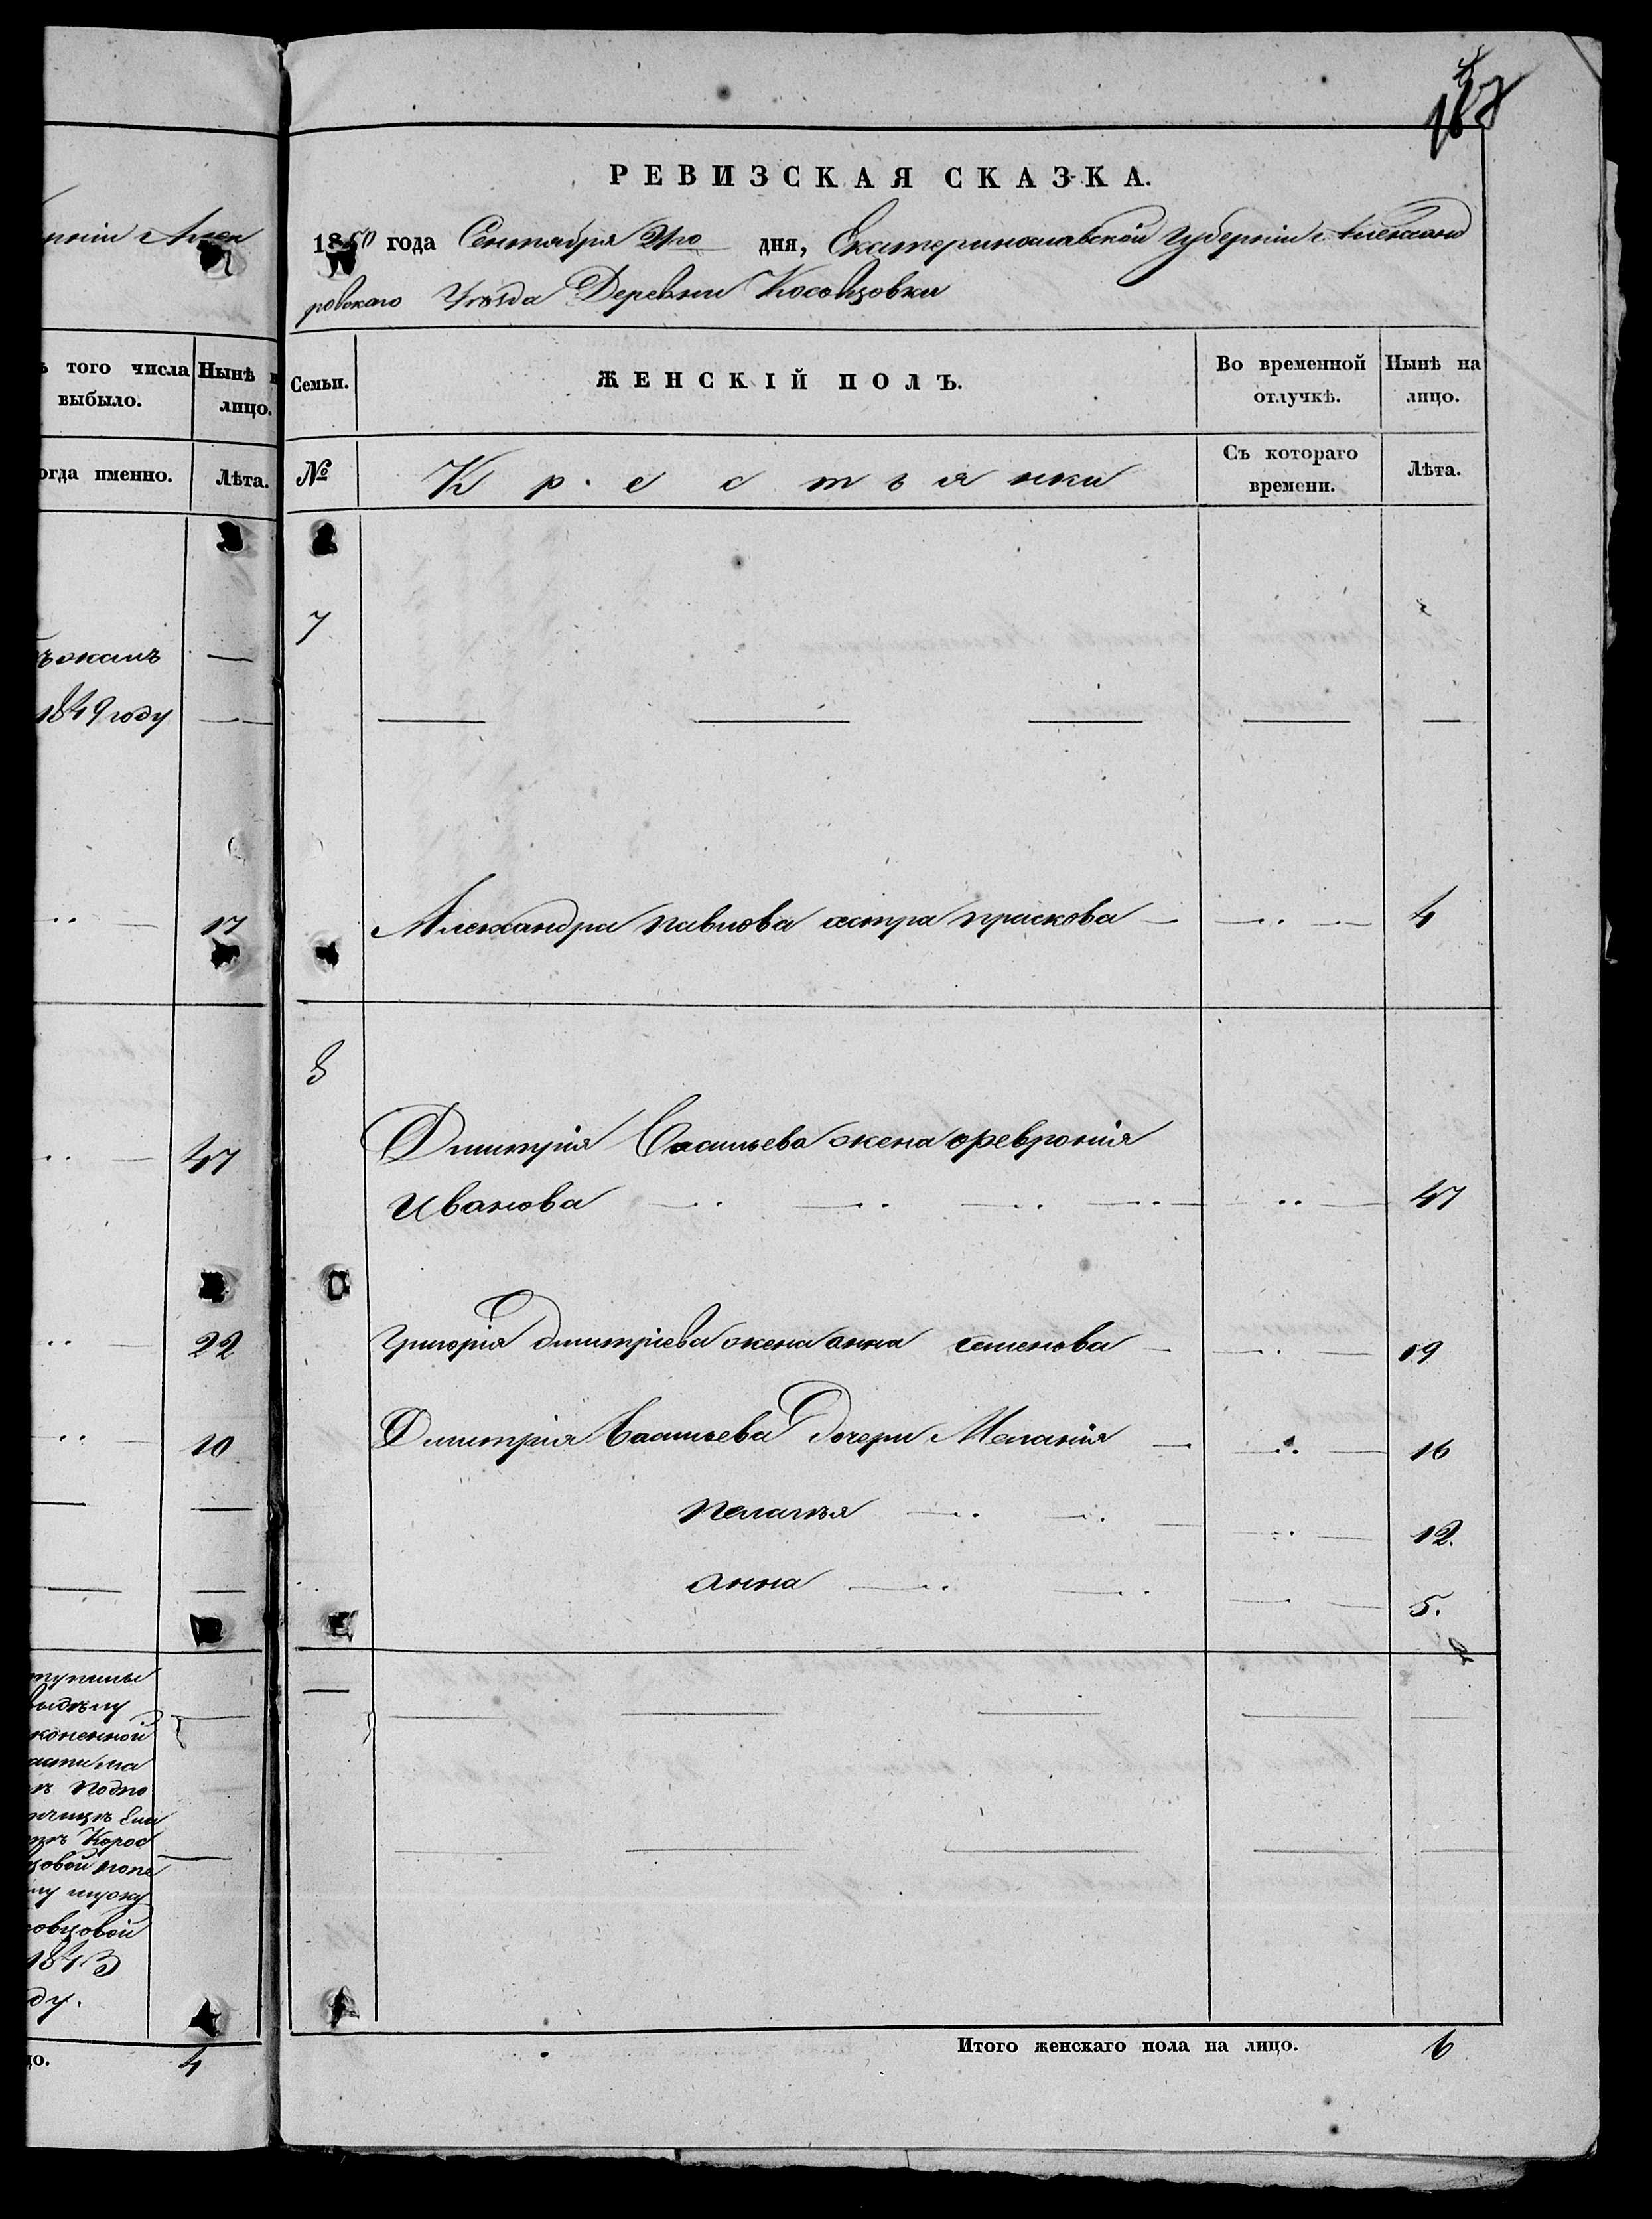 нiи Алек
ъ того числа
выбыло.
Нынѣ н
лицо.
огда именно.
Лѣта.
1849 году
17
47
22
10
подпо
Корос
цовой
совцовой
1843
ду.
цо.
4
РЕВИЗСКАЯ СКАЗКА.
1850 года Сентября 2го дня, Екатеринославской Губернiи Александ
ровскаго Уѣзда Деревни Косовцовки
Семьи.
ЖЕНСКIЙ ПОЛЪ.
Во временной
отлучкѣ.
Нынѣ на
лицо.
№
Крестьянки
Съ котораго
времени.
Лѣта.
7
Александра павлова сестра прасковa 4
8
Дмитрiя Васильева жена феврониiя
Иванова 47
григорiя дмитрiева жена анна семенова 19
Дмитрiя Васильева Дочери Меланiя 16
пелагѣя 12.
анна 5.
Итого женскаго пола на лицо. 6